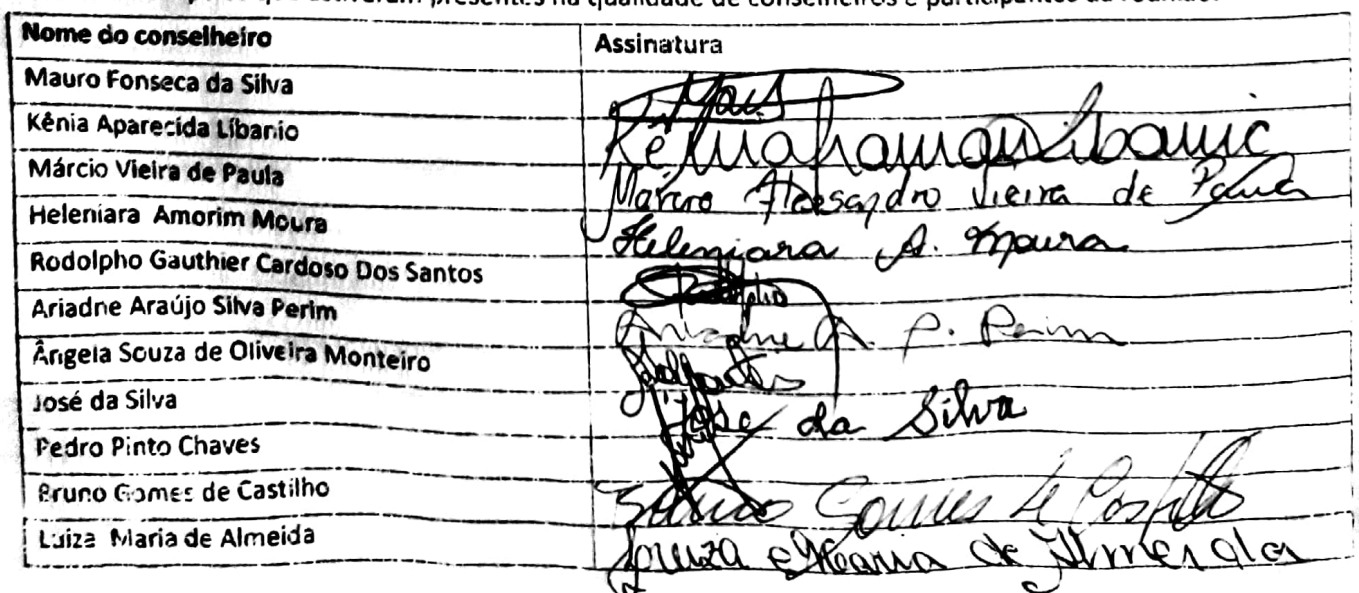 presentes na qualidade de conselheiros e participantes da reunião.
Nome do conselheiro Assinatura
Mauro Fonseca da Silva
Kênia Aparecida Líbanio
Márcio Vieira de Paula Márcio Alessandro Vieira de Paula
Heleniara Amorim Moura Heleniara A. Moura
Rodolpho Gauthier Cardoso Dos Santos
Ariadne Araújo Silva Perim Ariadne A. P. Perim
Ângela Souza de Oliveira Monteiro
José da Silva José da Silva
Pedro Pinto Chaves
Bruno Gomes de Castilho Bruno Gomes de Castilho
Luiza Maria de Almeida Louiza Maria de Almeida